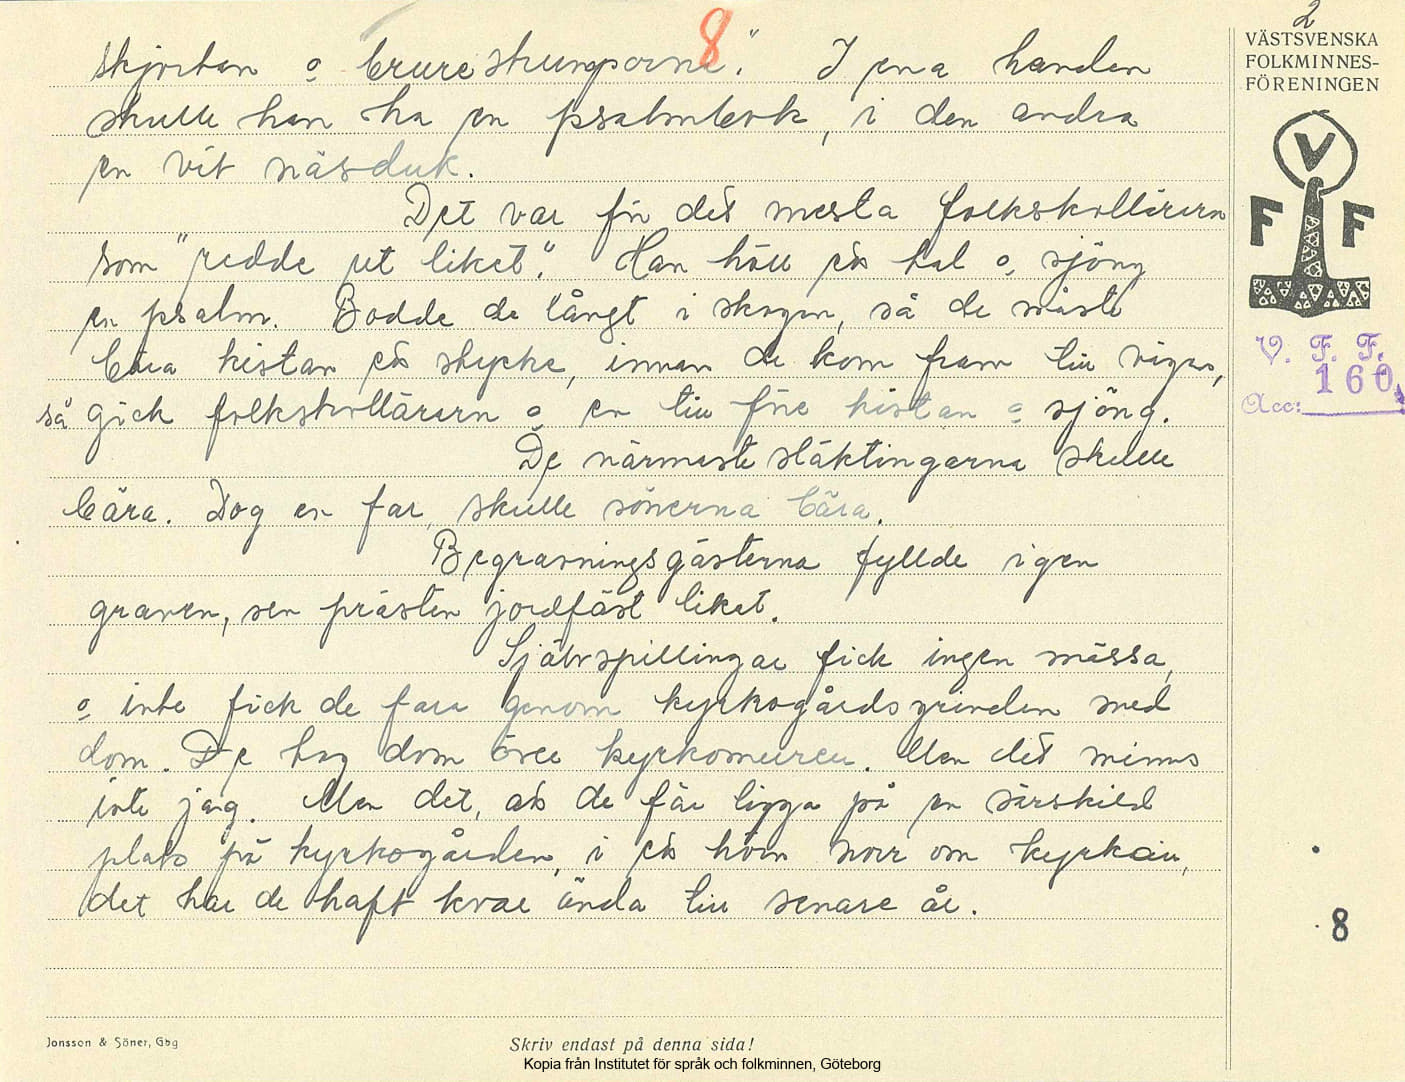 2
8
VÄSTSVENSKA
FOLKMINNES-
FÖRENINGEN
V
F F
V. F. F.
Acc: 160
skjortan o "brurestrumporna". I ena handen
skulle han ha en psalmbok, i den andra
en vit näsduk.
Det var för det mesta folkskolläraren
som "redde ut liket". Han höll ett tal o sjöng
en psalm. Bodde de långt i skogen, så de måste
bära kistan ett stycke, innan de kom fram till vägen,
så gick folkskolläraren o en till före kistan o sjöng.
De närmaste släktingarna skulle
bära. Dog en far, skulle sönerna bära.
Begravningsgästerna fyllde igen
graven, sen prästen jordfäst liket.
Självspillingar fick ingen mässa,
o inte fick de fara genom kyrkogårdsgrinden med
dom. De tog dom över kyrkomuren. Men det minns
inte jag. Men det, att de får ligga på en särskild
plats på kyrkogården, i ett hörn norr om kyrkan,
det har de haft kvar ända till senare år.
8
Jonsson & Söner, Gbg
Skriv endast på denna sida!
Kopia från Institutet för språk och folkminnen, Göteborg